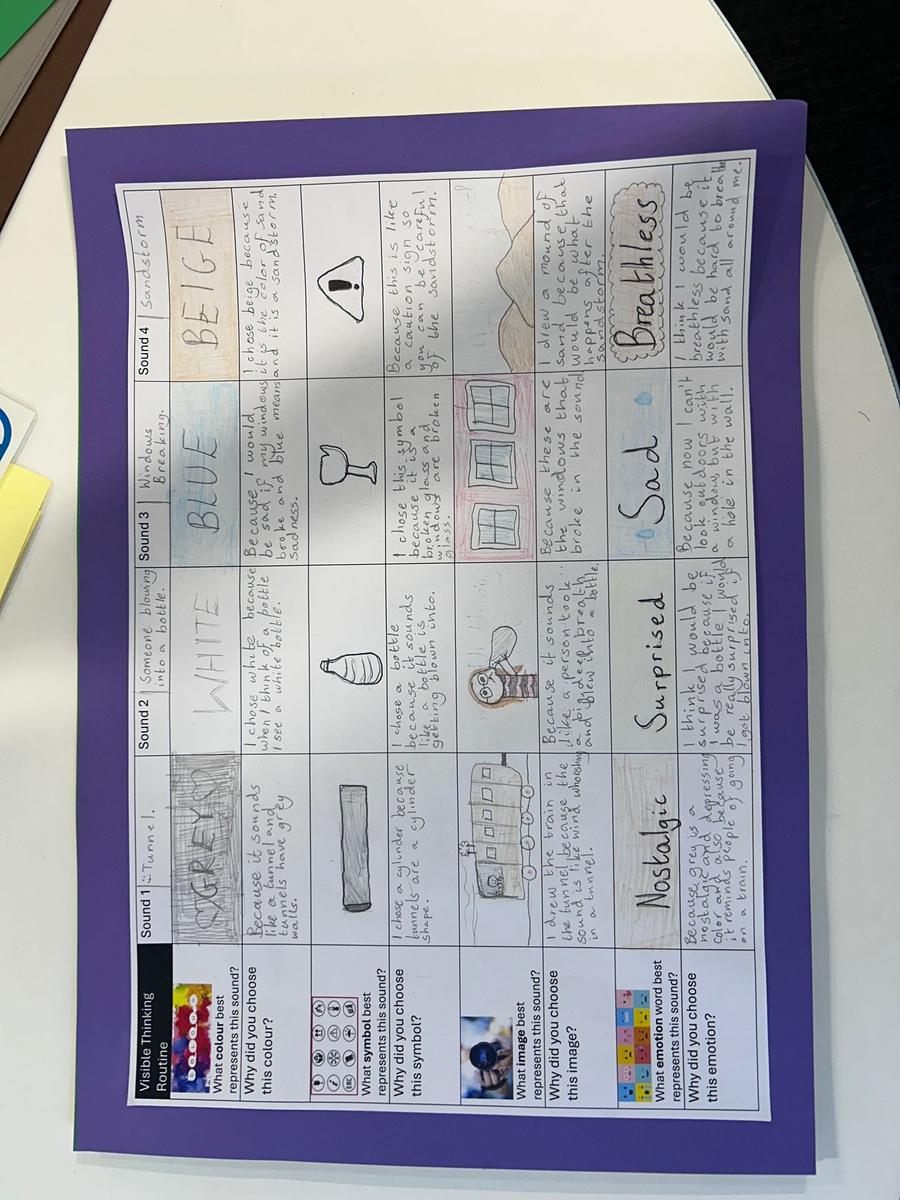 Visible Thinking
Routine
Sound 1 : Tunnel.
Sound 2 Someone blowing
into a bottle.
Sound 3 Windows
Breaking.
Sound 4 Sandstorm
What colour best
represents this sound?
GREY
WHITE
BLUE
BEIGE
Why did you choose
this colour?
Because it sounds
like a tunnel and
tunnels have grey
walls.
I chose white because
when I think of a bottle
I see a white bottle.
Because I would
be sad if my windows
broke and blue means
sadness.
I chose beige because
it is the color of sand
and it is a sandstorm.
What symbol best
represents this sound?
Why did you choose
this symbol?
I chose a cylinder because
tunnels are a cylinder
shape.
I chose a bottle
because it sounds
like a bottle is
getting blown into.
I chose this symbol
because it is a
broken glass and
windows are broken
glass.
Because this is like
a caution sign so
you can be careful
of the sandstorm.
What image best
represents this sound?
Why did you choose
this image?
I drew the train in
the tunnel because the
sound is like wind whooshing
in a tunnel.
Because it sounds
like a person took
a big deep breath
and blew into a bottle.
Because these are
the windows that
broke in the sound
I drew a mound of
sand because that
would be what
happens after the
sandstorm.
What emotion word best
represents this sound?
Nostalgic
Surprised
Sad
Breathless
Why did you choose
this emotion?
Because grey is a
nostalgic and depressing
color and also because
it reminds people of going
on a train.
I think I would be
surprised because if
I was a bottle I would
be really surprised if
I got blown into.
Because now I can't
look outdoors with
a window but with
a hole in the wall.
I think I would be
breathless because it
would be hard to breathe
with sand all around me.